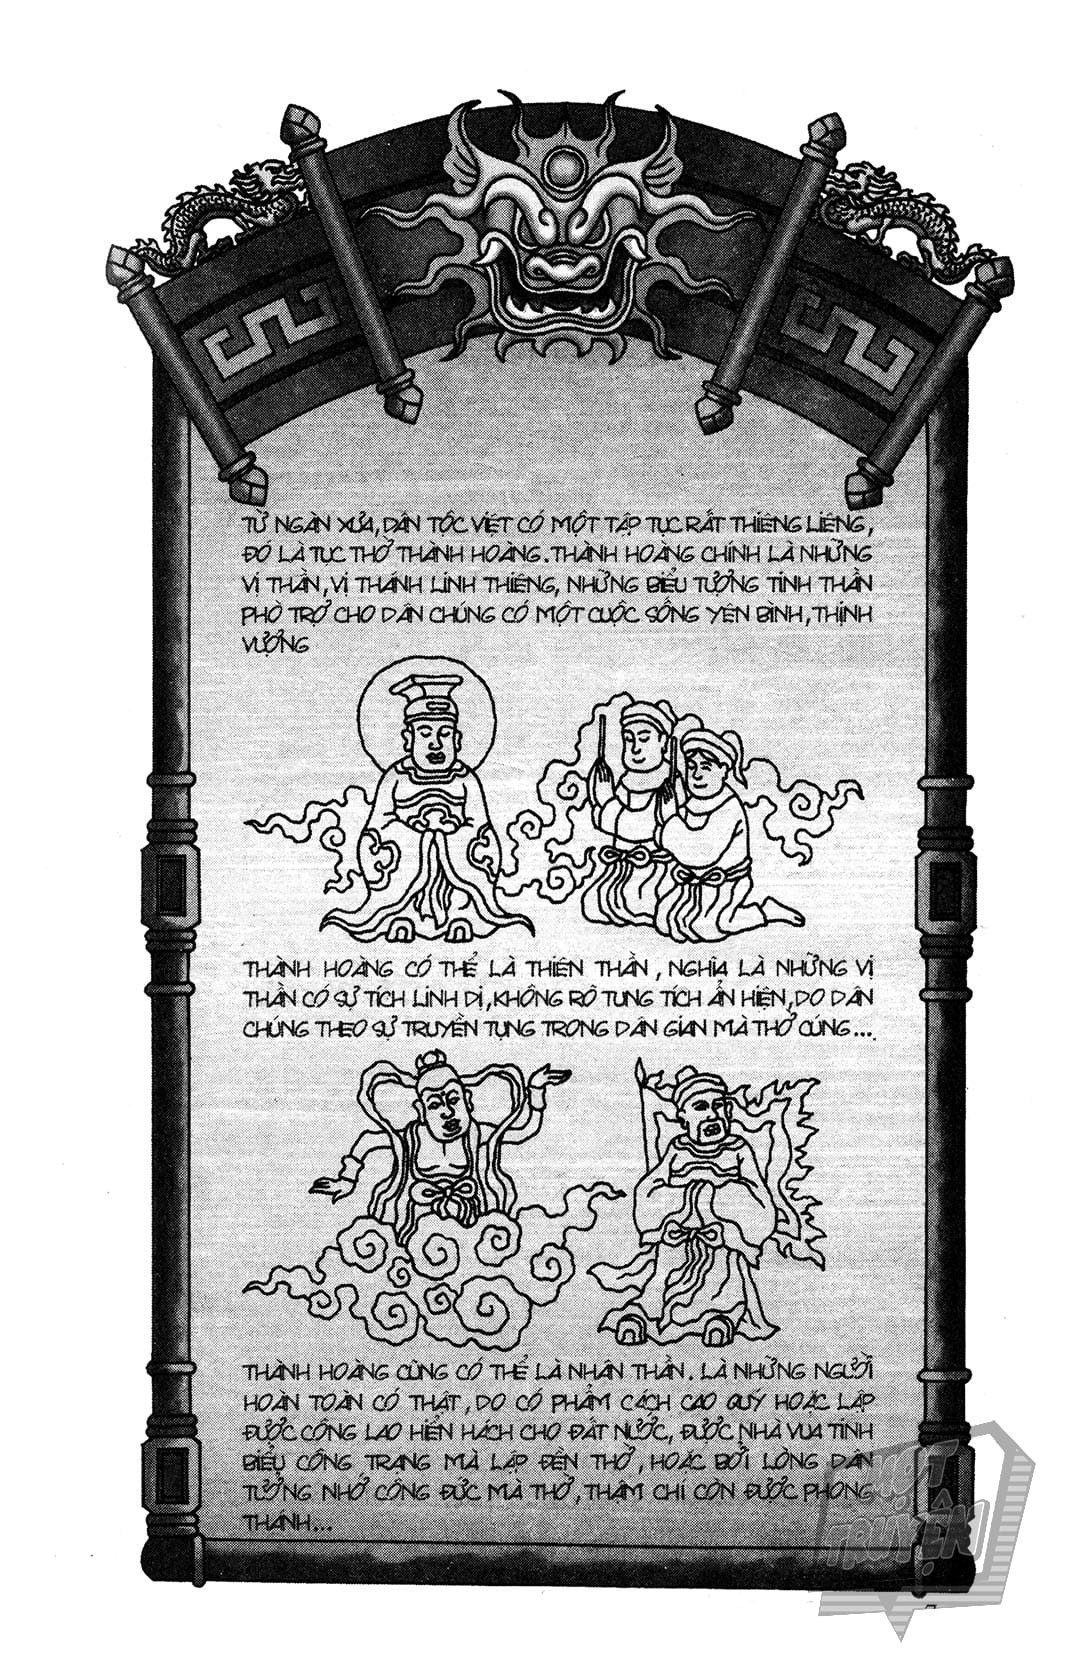 TỪ NGÀN XƯA, DÂN TỘC VIỆT CÓ MỘT TẬP TỤC RẤT THIÊNG LIÊNG,
ĐÓ LÀ TỤC THỜ THÀNH HOÀNG. THÀNH HOÀNG CHÍNH LÀ NHỮNG
VỊ THẦN, VỊ THÁNH LINH THIÊNG, NHỮNG BIỂU TƯỢNG TINH THẦN
PHÒ TRỢ CHO DÂN CHÚNG CÓ MỘT CUỘC SỐNG YÊN BÌNH, THỊNH
VƯỢNG
THÀNH HOÀNG CÓ THỂ LÀ THIÊN THẦN, NGHĨA LÀ NHỮNG VỊ
THẦN CÓ SỰ TÍCH LINH DỊ, KHÔNG RÕ TUNG TÍCH ẨN HIỆN, DO DÂN
CHÚNG THEO SỰ TRUYỀN TỤNG TRONG DÂN GIAN MÀ THỜ CÚNG...
THÀNH HOÀNG CŨNG CÓ THỂ LÀ NHÂN THẦN. LÀ NHỮNG NGƯỜI
HOÀN TOÀN CÓ THẬT, DO CÓ PHẨM CÁCH CAO QUÝ HOẶC LẬP
ĐƯỢC CÔNG LAO HIỂN HÁCH CHO ĐẤT NƯỚC, ĐƯỢC NHÀ VUA TINH
BIỂU CÔNG TRẠNG MÀ LẬP ĐỀN THỜ, HOẶC BỞI LÒNG DÂN
TƯỞNG NHỚ CÔNG ĐỨC MÀ THỜ, THẬM CHÍ CÒN ĐƯỢC PHONG
THÁNH...
MỌT
TRUYỆN